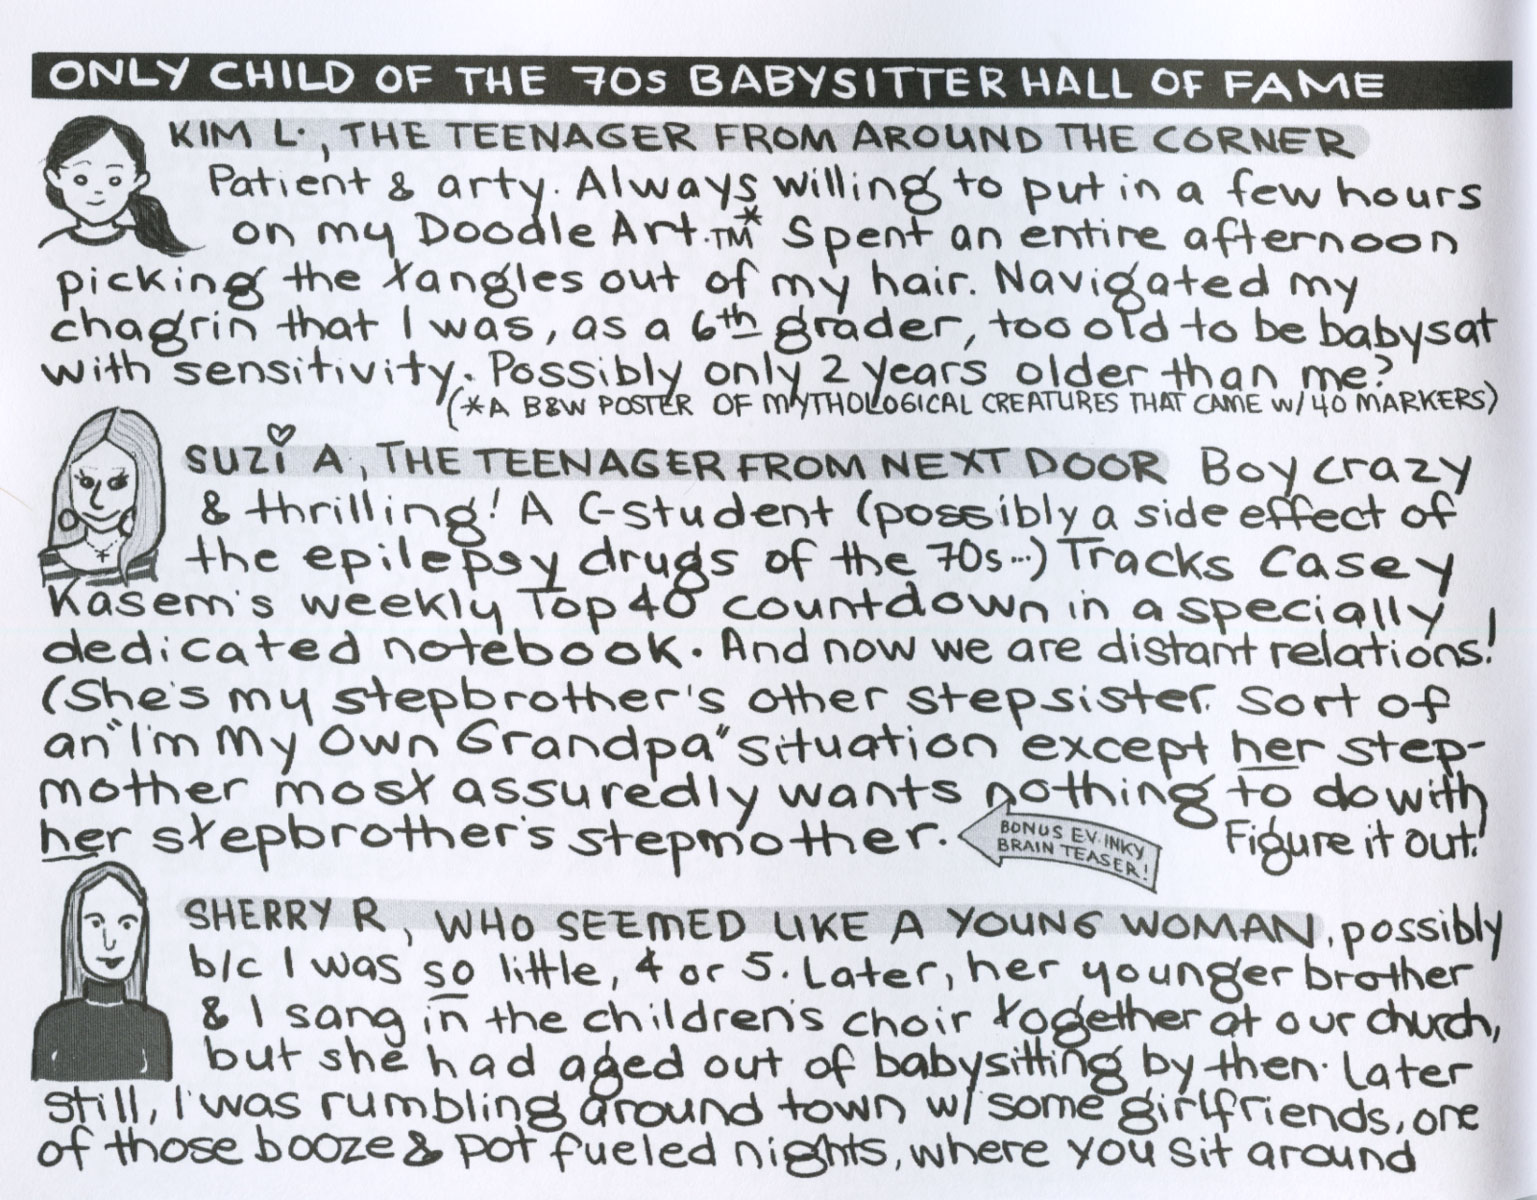 ONLY CHILD OF THE 70s BABYSITTER HALL OF FAME
KIM L., THE TEENAGER FROM AROUND THE CORNER
Patient & arty. Always willing to put in a few hours
on my Doodle Art.™* Spent an entire afternoon
picking the tangles out of my hair. Navigated my
chagrin that I was, as a 6th grader, too old to be babysat
with sensitivity. Possibly only 2 years older than me?
(*A B&W POSTER OF MYTHOLOGICAL CREATURES THAT CAME W/ 40 MARKERS)
SUZI A, THE TEENAGER FROM NEXT DOOR Boy crazy
& thrilling! A C-student (possibly a side effect of
the epilepsy drugs of the 70s...) Tracks Casey
Kasem's weekly Top 40 countdown in a specially
dedicated notebook. And now we are distant relations!
(She's my stepbrother's other stepsister. Sort of
an "I'm My Own Grandpa" situation except her step-
mother most assuredly wants nothing to do with
her stepbrother's stepmother. Figure it out!
BONUS EV. INKY
BRAIN TEASER!
SHERRY R, WHO SEEMED LIKE A YOUNG WOMAN, possibly
b/c I was so little, 4 or 5. Later, her younger brother
& I sang in the children's choir together at our church,
but she had aged out of babysitting by then. Later
still, I was rumbling around town w/ some girlfriends, one
of those booze & pot fueled nights, where you sit around